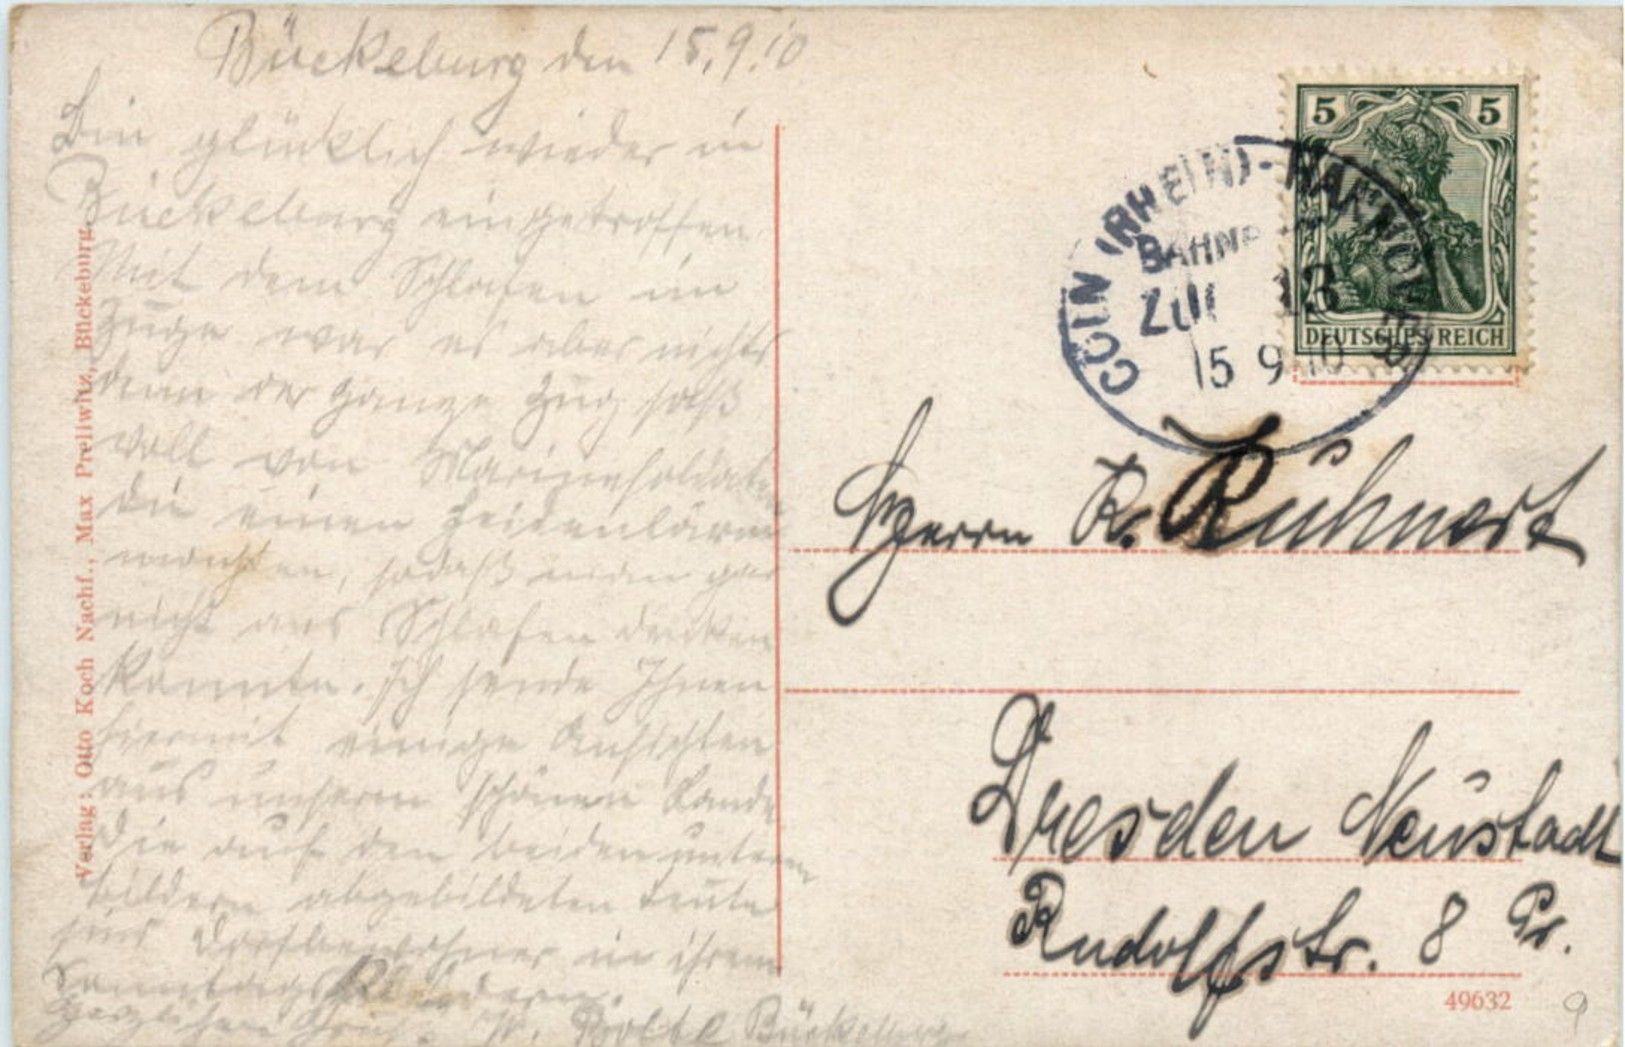 Bückeburg den 15.9.10
Bin glücklich wieder in
Bückeburg eingetroffen.
Mit dem Schlafen im
Zuge war es aber nichts
denn der ganze Zug saß
voll von Marinesoldaten
die einen Heidenlärm
machten, sodaß man gar
nicht ans Schlafen denken
konnte. Ich sende Ihnen
hiermit einige Ansichten
aus unserm schönen Lande
Die auf den beiden untern
Bildern abgebildeten Leute
sind Dorfbewohner in ihren
Sonntagskleidern.
Herzlichen Gruß. W. Bolte Bückeburg
Verlag: Otto Koch Nachf., Max Prellwitz, Bückeburg.
5 5
DEUTSCHES REICH
CÖLN (RHEIN)-HANNOVER
BAHNP
ZUG 13
15 9 10
Herrn R. Kühnert
Dresden Neustadt
Rudolfstr. 8 Pr.
49632
9